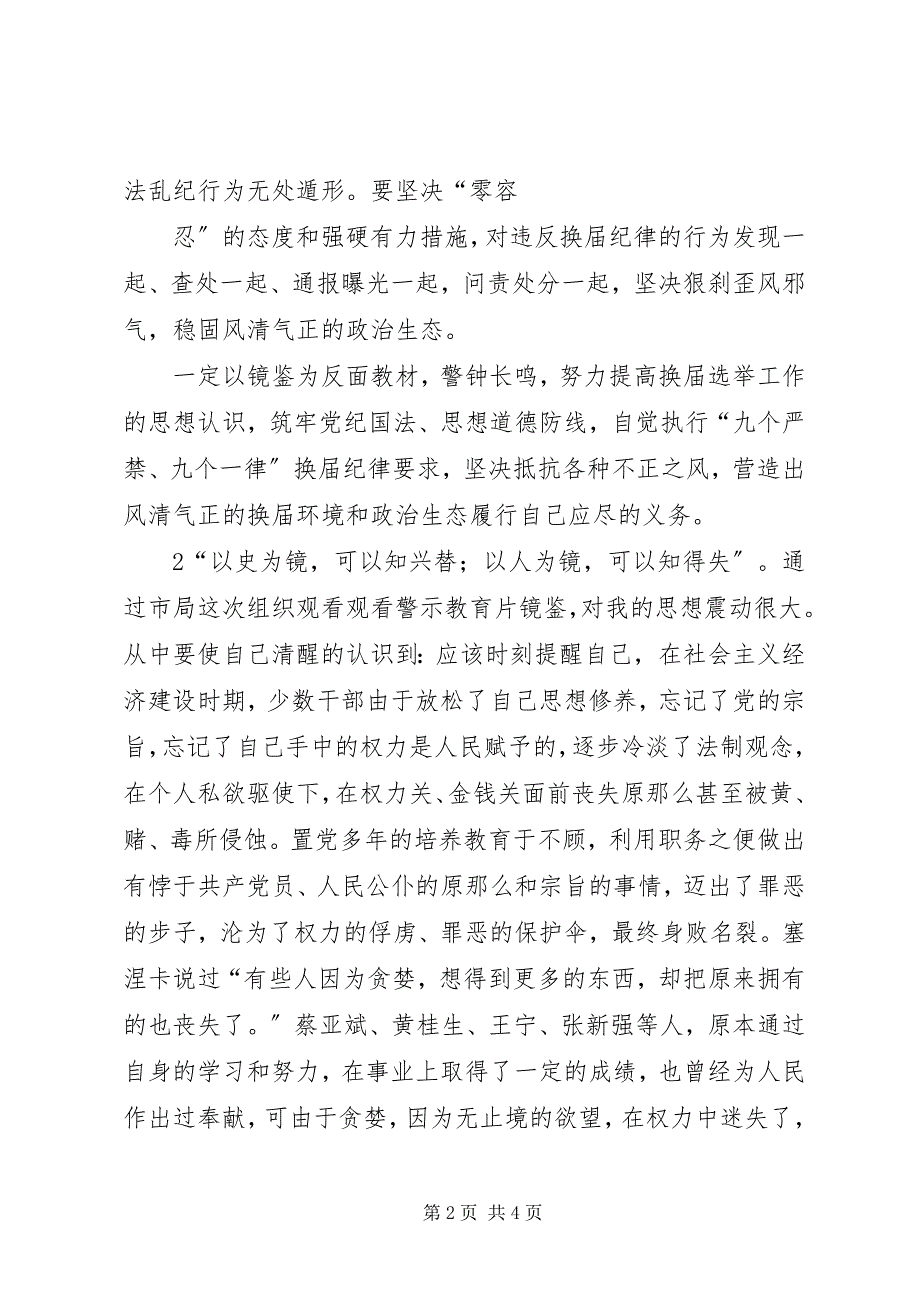 法乱纪行为无处遁形。要坚决“零容
忍〞的态度和强硬有力措施，对违反换届纪律的行为发现一
起、查处一起、通报曝光一起，问责处分一起，坚决狠刹歪风邪
气，稳固风清气正的政治生态。
一定以镜鉴为反面教材，警钟长鸣，努力提高换届选举工作
的思想认识，筑牢党纪国法、思想道德防线，自觉执行“九个严
禁、九个一律〞换届纪律要求，坚决抵抗各种不正之风，营造出
风清气正的换届环境和政治生态履行自己应尽的义务。
2“以史为镜，可以知兴替；以人为镜，可以知得失〞。通
过市局这次组织观看观看警示教育片镜鉴，对我的思想震动很大。
从中要使自己清醒的认识到：应该时刻提醒自己，在社会主义经
济建设时期，少数干部由于放松了自己思想修养，忘记了党的宗
旨，忘记了自己手中的权力是人民赋予的，逐步冷淡了法制观念，
在个人私欲驱使下，在权力关、金钱关面前丧失原那么甚至被黄、
赌、毒所侵蚀。置党多年的培养教育于不顾，利用职务之便做出
有悖于共产党员、人民公仆的原那么和宗旨的事情，迈出了罪恶
的步子，沦为了权力的俘虏、罪恶的保护伞，最终身败名裂。塞
涅卡说过“有些人因为贪婪，想得到更多的东西，却把原来拥有
的也丧失了。〞蔡亚斌、黄桂生、王宁、张新强等人，原本通过
自身的学习和努力，在事业上取得了一定的成绩，也曾经为人民
作出过奉献，可由于贪婪，因为无止境的欲望，在权力中迷失了，
第 2 页 共 4 页